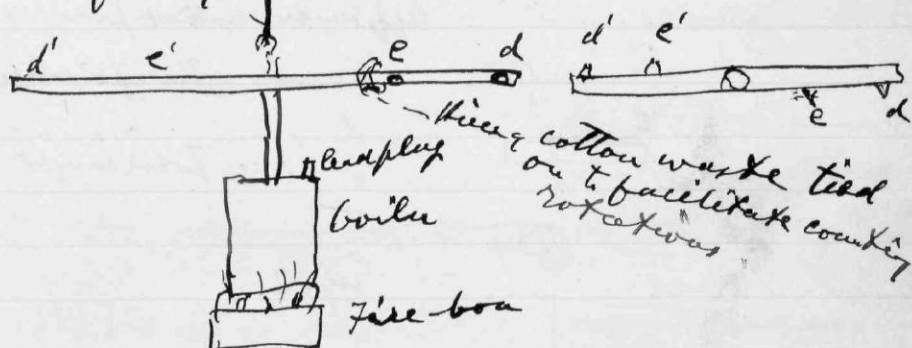 d' e' e d
d' e' e d
Piece of cotton waste tied
on to facilitate counting
rotations
lead plug
boiler
Fire box